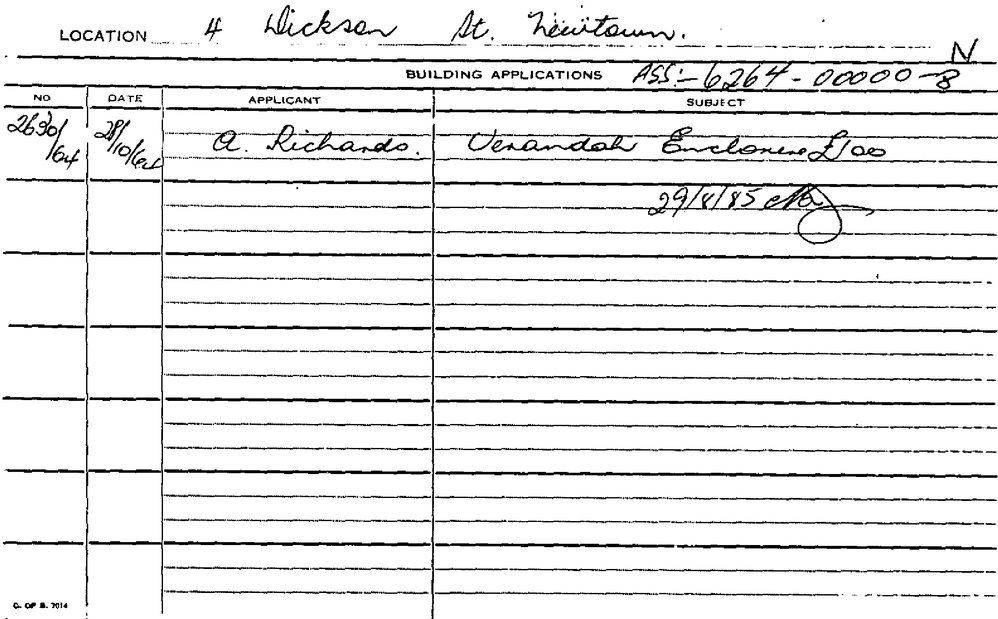 LOCATION 4 Dickson St. Newtown.
N
BUILDING APPLICATIONS ASS:- 6264-00000-8
NO DATE APPLICANT SUBJECT
2630/64 28/10/64 A. Richards. Verandah Enclosure £100
29/8/85
C. OF S. 7014